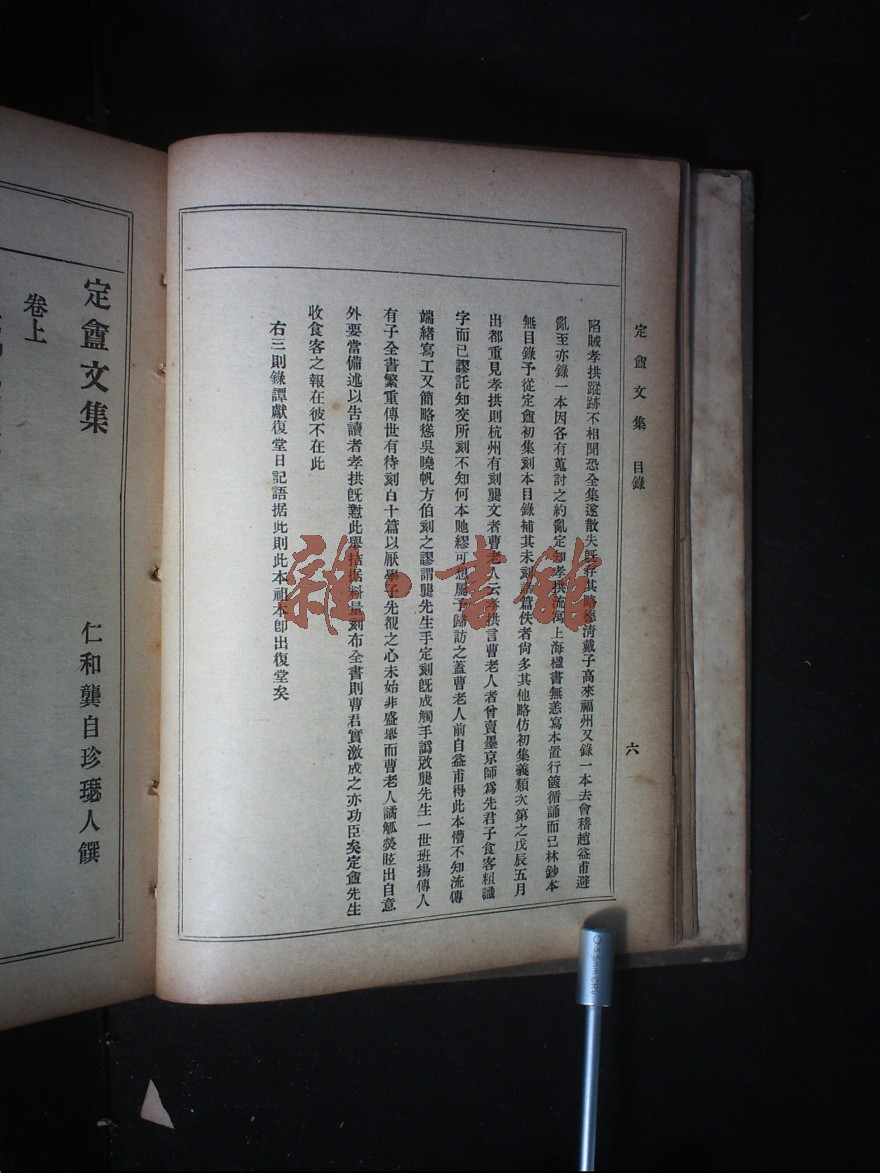 定盦文集 目錄
六
陷賊孝拱蹤跡不相聞恐全集遂散失旣存其略德清戴子高來福州又錄一本去會稽趙益甫避
亂至亦錄一本因各有蒐討之約亂定知孝拱流寓上海楹書無恙寫本置行篋循誦而已林鈔本
無目錄予從定盦初集刻本目錄補其未刻諸篇佚者尙多其他略仿初集義類次第之戊辰五月
出都重見孝拱則杭州有刻龔文者曹老人云孝拱言曹老人者曾賣墨京師爲先君子食客粗識
字而已謬託知交所刻不知何本訑繆可想屬予歸訪之蓋曹老人前自益甫得此本懵不知流傳
端緒寫工又簡略慫吳曉帆方伯刻之謬謂龔先生手定刻旣成觸手譌敚龔先生一世班揚傳人
有子全書繁重傳世有待刻百十篇以厭學子先覩之心未始非盛舉而曹老人譎觚熒眩出自意
外要當備述以告讀者孝拱旣懟此舉拮据料量刻布全書則曹君實激成之亦功臣矣定盦先生
收食客之報在彼不在此
右三則錄譚獻復堂日記語据此則此本祖本卽出復堂矣
定盦文集
卷上
仁和龔自珍瑟人饌
雜·書館